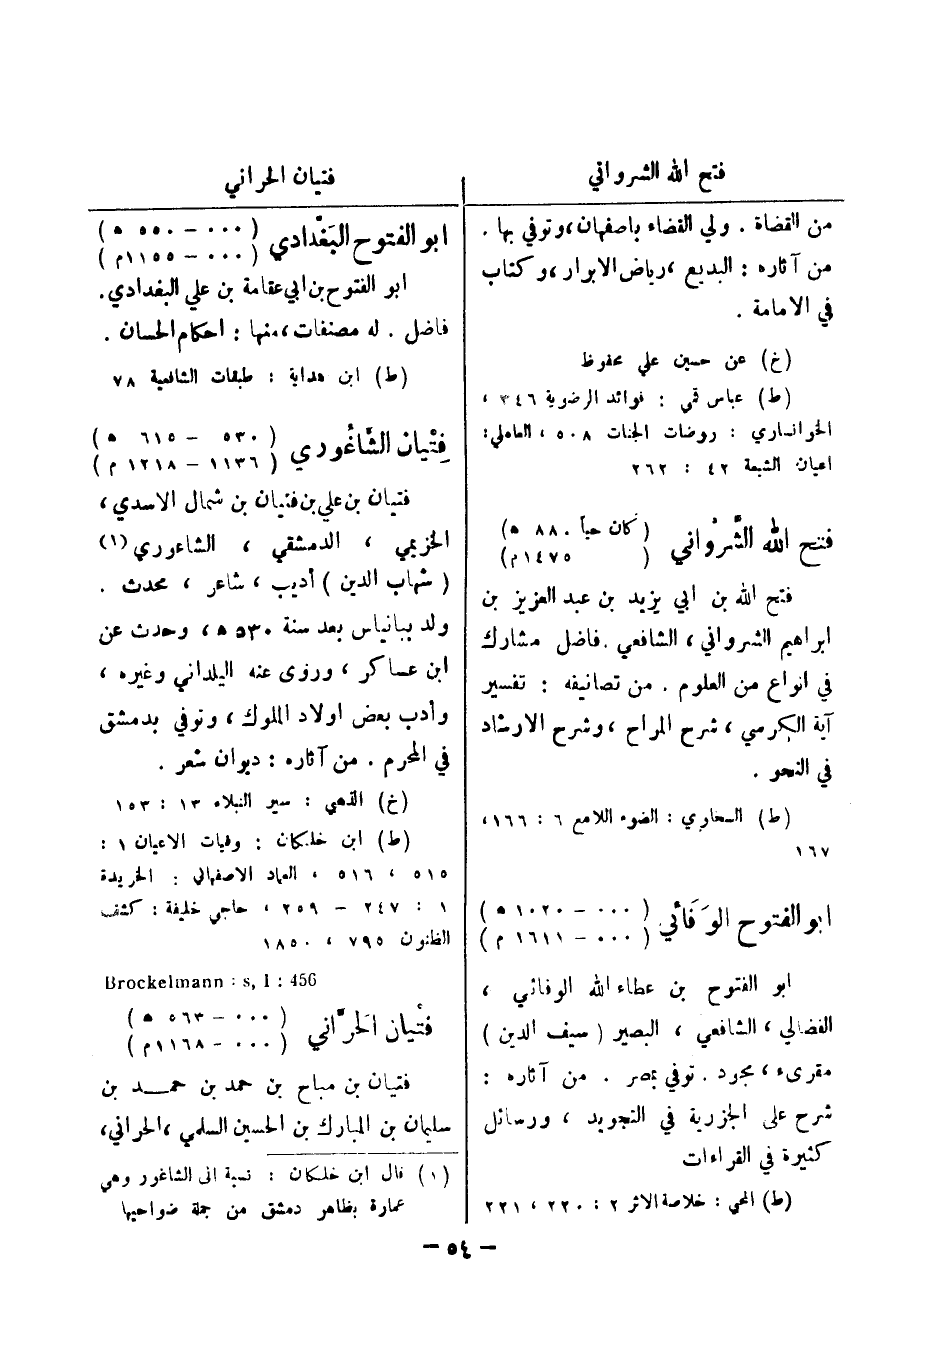 فتح الله الشرواني
من القضاة . ولي القضاء باصفهان، وتوفي بها .
من آثاره : البديع ، رياض الابرار، وكتاب
في الامامة .
(خ) عن حسين علي محفوظ
(ط) عباس قمي : فوائد الرضوية ٣٤٦ ،
الخوانساري : روضات الجنات ٥٠٨ ، العاملي:
اعيان الشيعة ٤٢ : ٢٦٢
فتح الله الشَّرْواني (كان حياً ٨٨٠ هـ)
( ١٤٧٥م)
فتح الله بن ابي يزيد بن عبد العزيز بن
ابراهيم الشرواني ، الشافعي . فاضل مشارك
في انواع من العلوم . من تصانيفه : تفسير
آية الكرسي ، شرح المراح ، وشرح الارشاد
في النحو .
(ط) السخاوي : الضوء اللامع ٦ : ١٦٦،
١٦٧
ابو الفتوح الوَفَائي (٠٠٠ – ١٠٢٠ هـ)
(٠٠٠ – ١٦١١ م)
ابو الفتوح بن عطاء الله الوفائي ،
الفضالي ، الشافعي ، البصير ( سيف الدين )
مقرىء ، مجود . توفي بمصر . من آثاره :
شرح على الجزرية في التجويد ، ورسائل
كثيرة في القراءات
(ط) المحبي : خلاصة الاثر ٢ : ٢٢٠ ، ٢٢١
فتيان الحراني
ابو الفتوح البَغْدادي (٠٠٠ – ٥٥٠ هـ)
(٠٠٠ – ١١٥٥م)
ابو الفتوح بن ابي عقامة بن علي البغدادي.
فاضل . له مصنفات ، منها : احكام الحسان .
(ط) ابن هداية : طبقات الشافعية ٧٨
فِتْيان الشَّاغُوري (٥٣٠ – ٦١٥ هـ)
(١١٣٦ – ١٢١٨ م)
فتيان بن علي بن فتيان بن شمال الاسدي ،
الخزيمي ، الدمشقي ، الشاغوري (١)
( شهاب الدين ) أديب ، شاعر ، محدث .
ولد ببانياس بعد سنة ٥٣٠ هـ ، وحدث عن
ابن عساكر ، وروى عنه البلداني وغيره ،
وأدب بعض اولاد الملوك ، وتوفي بدمشق
في المحرم . من آثاره : ديوان شعر .
(خ) الذهبي : سير النبلاء ١٣ : ١٥٣
(ط) ابن خلكان : وفيات الاعيان ١ :
٥١٥ ، ٥١٦ ، العماد الاصفهاني : الخريدة
١ : ٢٤٧ – ٢٥٩ ، حاجي خليفة : كشف
الظنون ٧٩٥ ، ١٨٥٠
Brockelmann : s, I : 456
فتْيان الحَرَّاني (٠٠٠ – ٥٦٣ هـ)
(٠٠٠ – ١١٦٨م)
فتيان بن مباح بن حمد بن حمـــد بن
سليمان بن المبارك بن الحسين السلمي ، الحراني،
(١) قال ابن خلكان : نسبة الى الشاغور وهي
عمارة بظاهر دمشق من جملة ضواحيها
– ٥٤ –